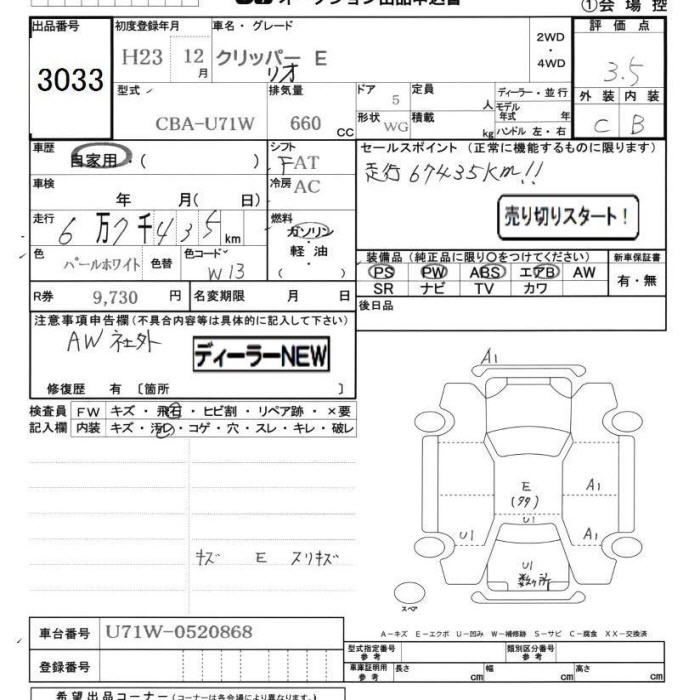 オークション出品申込書
①会場控
出品番号 初度登録年月 車名・グレード 2WD・4WD 評価点
3033 H23 12月 クリッパーリオ E 3.5
型式 排気量 ドア 定員 ディーラー・並行 外装 内装
CBA-U71W 660CC 5 人 モデル年式 年 C B
形状 積載
WG kg ハンドル 左・右
車歴 シフト セールスポイント (正常に機能するものに限ります)
自家用・( ) FAT 走行67435km!!
車検 冷房
年 月( 日) AC
売り切りスタート!
走行 燃料
6万7千435km ガソリン・軽油・( )
色 色替 色コード 装備品(純正品に限り○をつけてください) 新車保証書
パールホワイト W13 PS PW ABS エアB AW 有・無
SR ナビ TV カワ
R券 9,730円 名変期限 月 日 後日品
注意事項申告欄(不具合内容等は具体的に記入して下さい)
AW社外
ディーラーNEW
修復歴 有 〔箇所 〕
検査員 FW キズ・飛石・ヒビ割・リペア跡・×要
記入欄 内装 キズ・汚レ・コゲ・穴・スレ・キレ・破レ
キズ E スリキズ
A1
E
A1
U1
U1
A1
U1
数ヶ所
スペア
A-キズ E-エクボ U-凹み W-補修跡 S-サビ C-腐食 XX-交換済
車台番号 U71W-0520868
型式指定番号 参考 類別区分番号 参考
登録番号
車庫証明用 参考 長さ cm 幅 cm 高さ cm
希望出品コーナー(コーナーは各会場により異なります。)